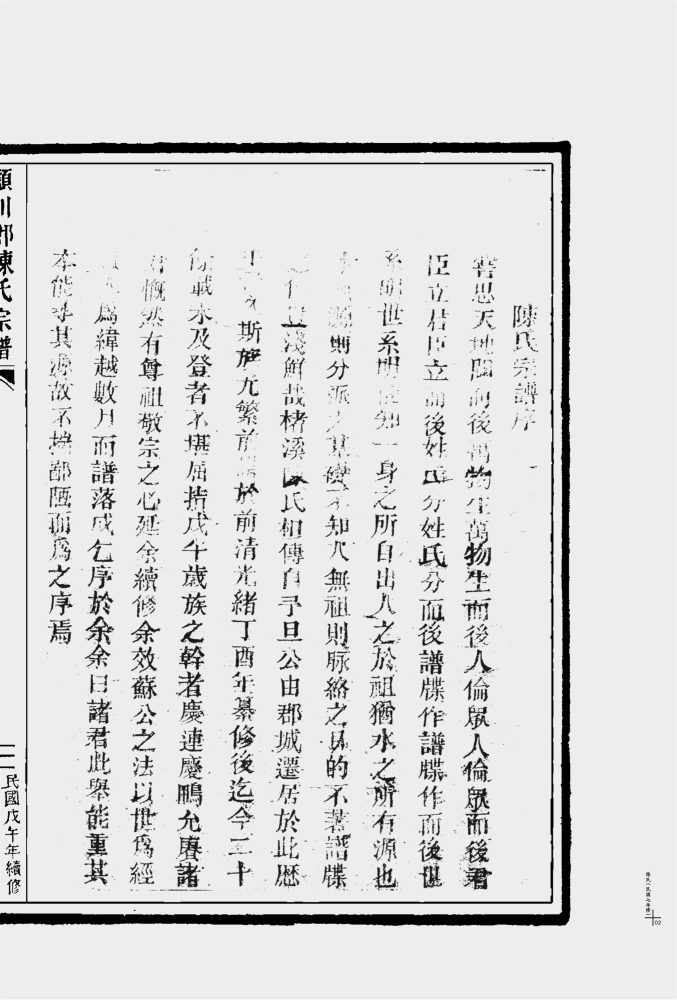 陳氏宗譜序
思天地闢而後萬物生萬物生而後人倫衆人倫衆而後君
臣立君臣立而後姓氏分姓氏分而後譜牒作譜牒作而後世
系明世系明而知一身之所自出人之於祖猶水之所有源也
源則分派不知人無祖則脉絡之的不著譜牒
淺鮮哉楮溪陳氏相傳自予旦公由郡城遷居於此歷
斯族尤繁前於前清光緒丁酉年纂修後迄今二十
餘載未及登者不堪屈指戊午歲族之幹者慶連慶鵰允賡諸
君慨然有尊祖敬宗之心延余續修余效蘇公之法以世爲經
爲緯越數月而譜落成乞序於余余曰諸君此舉能重其
本能尋其源故不揣鄙陋而爲之序焉
潁川郡陳氏宗譜
民國戊午年續修
02